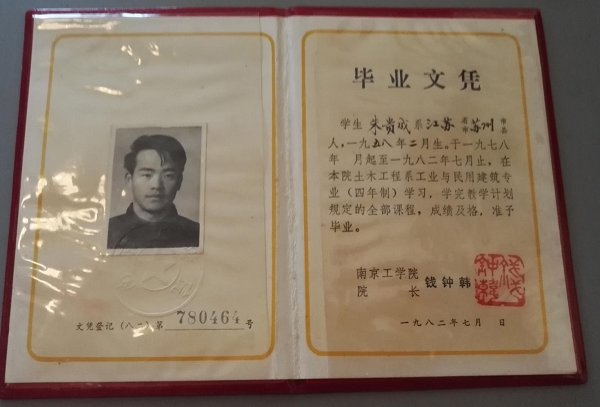 文凭登记(八二)第 780464 号
毕业文凭
学生 朱贵成 系 江苏 省市 苏州 市县
人,一九五八年二月生。于一九七八
年 月起至一九八二年七月止,在
本院土木工程系工业与民用建筑专
业(四年制)学习,学完教学计划
规定的全部课程,成绩及格,准予
毕业。
南京工学院
院 长 钱钟韩
一九八二年七月 日